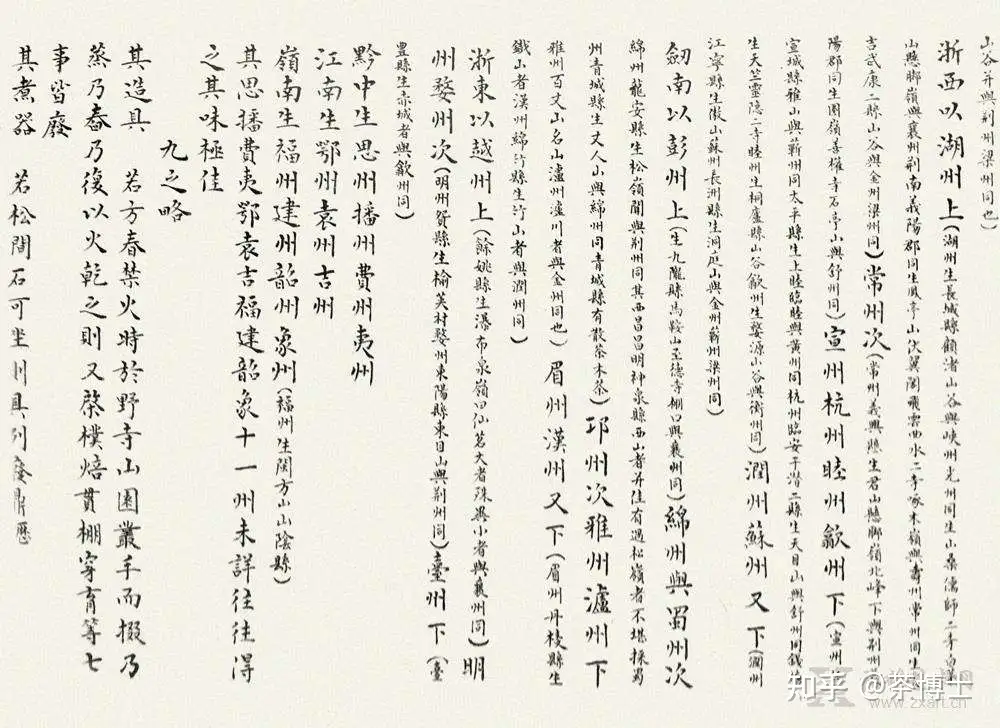 山谷并與荆州梁州同也)
浙西以湖州上(湖州生長城縣顧渚山谷與峽州光州同生山桑儒師二寺白
山懸脚嶺與襄州荆南義陽郡同生鳳亭山伏翼閣飛雲曲水二寺啄木嶺與壽州常州同生
吉武康二縣山谷與金州梁州同)常州次(常州義興縣生君山懸脚嶺北峰下與荆州
陽郡同生圈嶺善權寺石亭山與舒州同)宣州杭州睦州歙州下(宣州
宣城縣雅山與蘄州同太平縣生上睦臨睦與黄州同杭州臨安于潛二縣生天目山與舒州同錢
生天竺靈隐二寺睦州生桐廬縣山谷歙州生婺源山谷與衡州同)潤州蘇州又下(潤州
江寧縣生傲山蘇州長洲縣生洞庭山與金州蘄州梁州同)
劒南以彭州上(生九隴縣馬鞍山至德寺棚口與襄州同)綿州與蜀州次
綿州龍安縣生松嶺關與荆州同其西昌昌明神泉縣西山者并佳有過松嶺者不堪採蜀
州青城縣生丈人山與綿州同青城縣有散茶木茶)邛州次雅州瀘州下
雅州百丈山名山瀘州瀘川者與金州同也)眉州漢州又下(眉州丹棱縣生
鐵山者漢州綿竹縣生竹山者與潤州同)
浙東以越州上(餘姚縣生瀑布泉嶺曰仙茗大者殊異小者與襄州同)明
州婺州次(明州貿縣生榆荚村婺州東陽縣東目山與荆州同)臺州下(臺
豊縣生赤城者與歙州同)
黔中生思州播州費州夷州
江南生鄂州袁州吉州
嶺南生福州建州韶州象州(福州生閩方山山陰縣)
其思播費夷鄂袁吉福建韶象十一州未詳往往得
之其味極佳
九之略
其造具 若方春禁火時於野寺山園叢手而掇乃
蒸乃舂乃復以火乾之則又棨樸焙貫棚穿育等七
事皆廢
其煮器 若松間石可坐則具列廢
知乎 @茶博士
www.zxart.cn